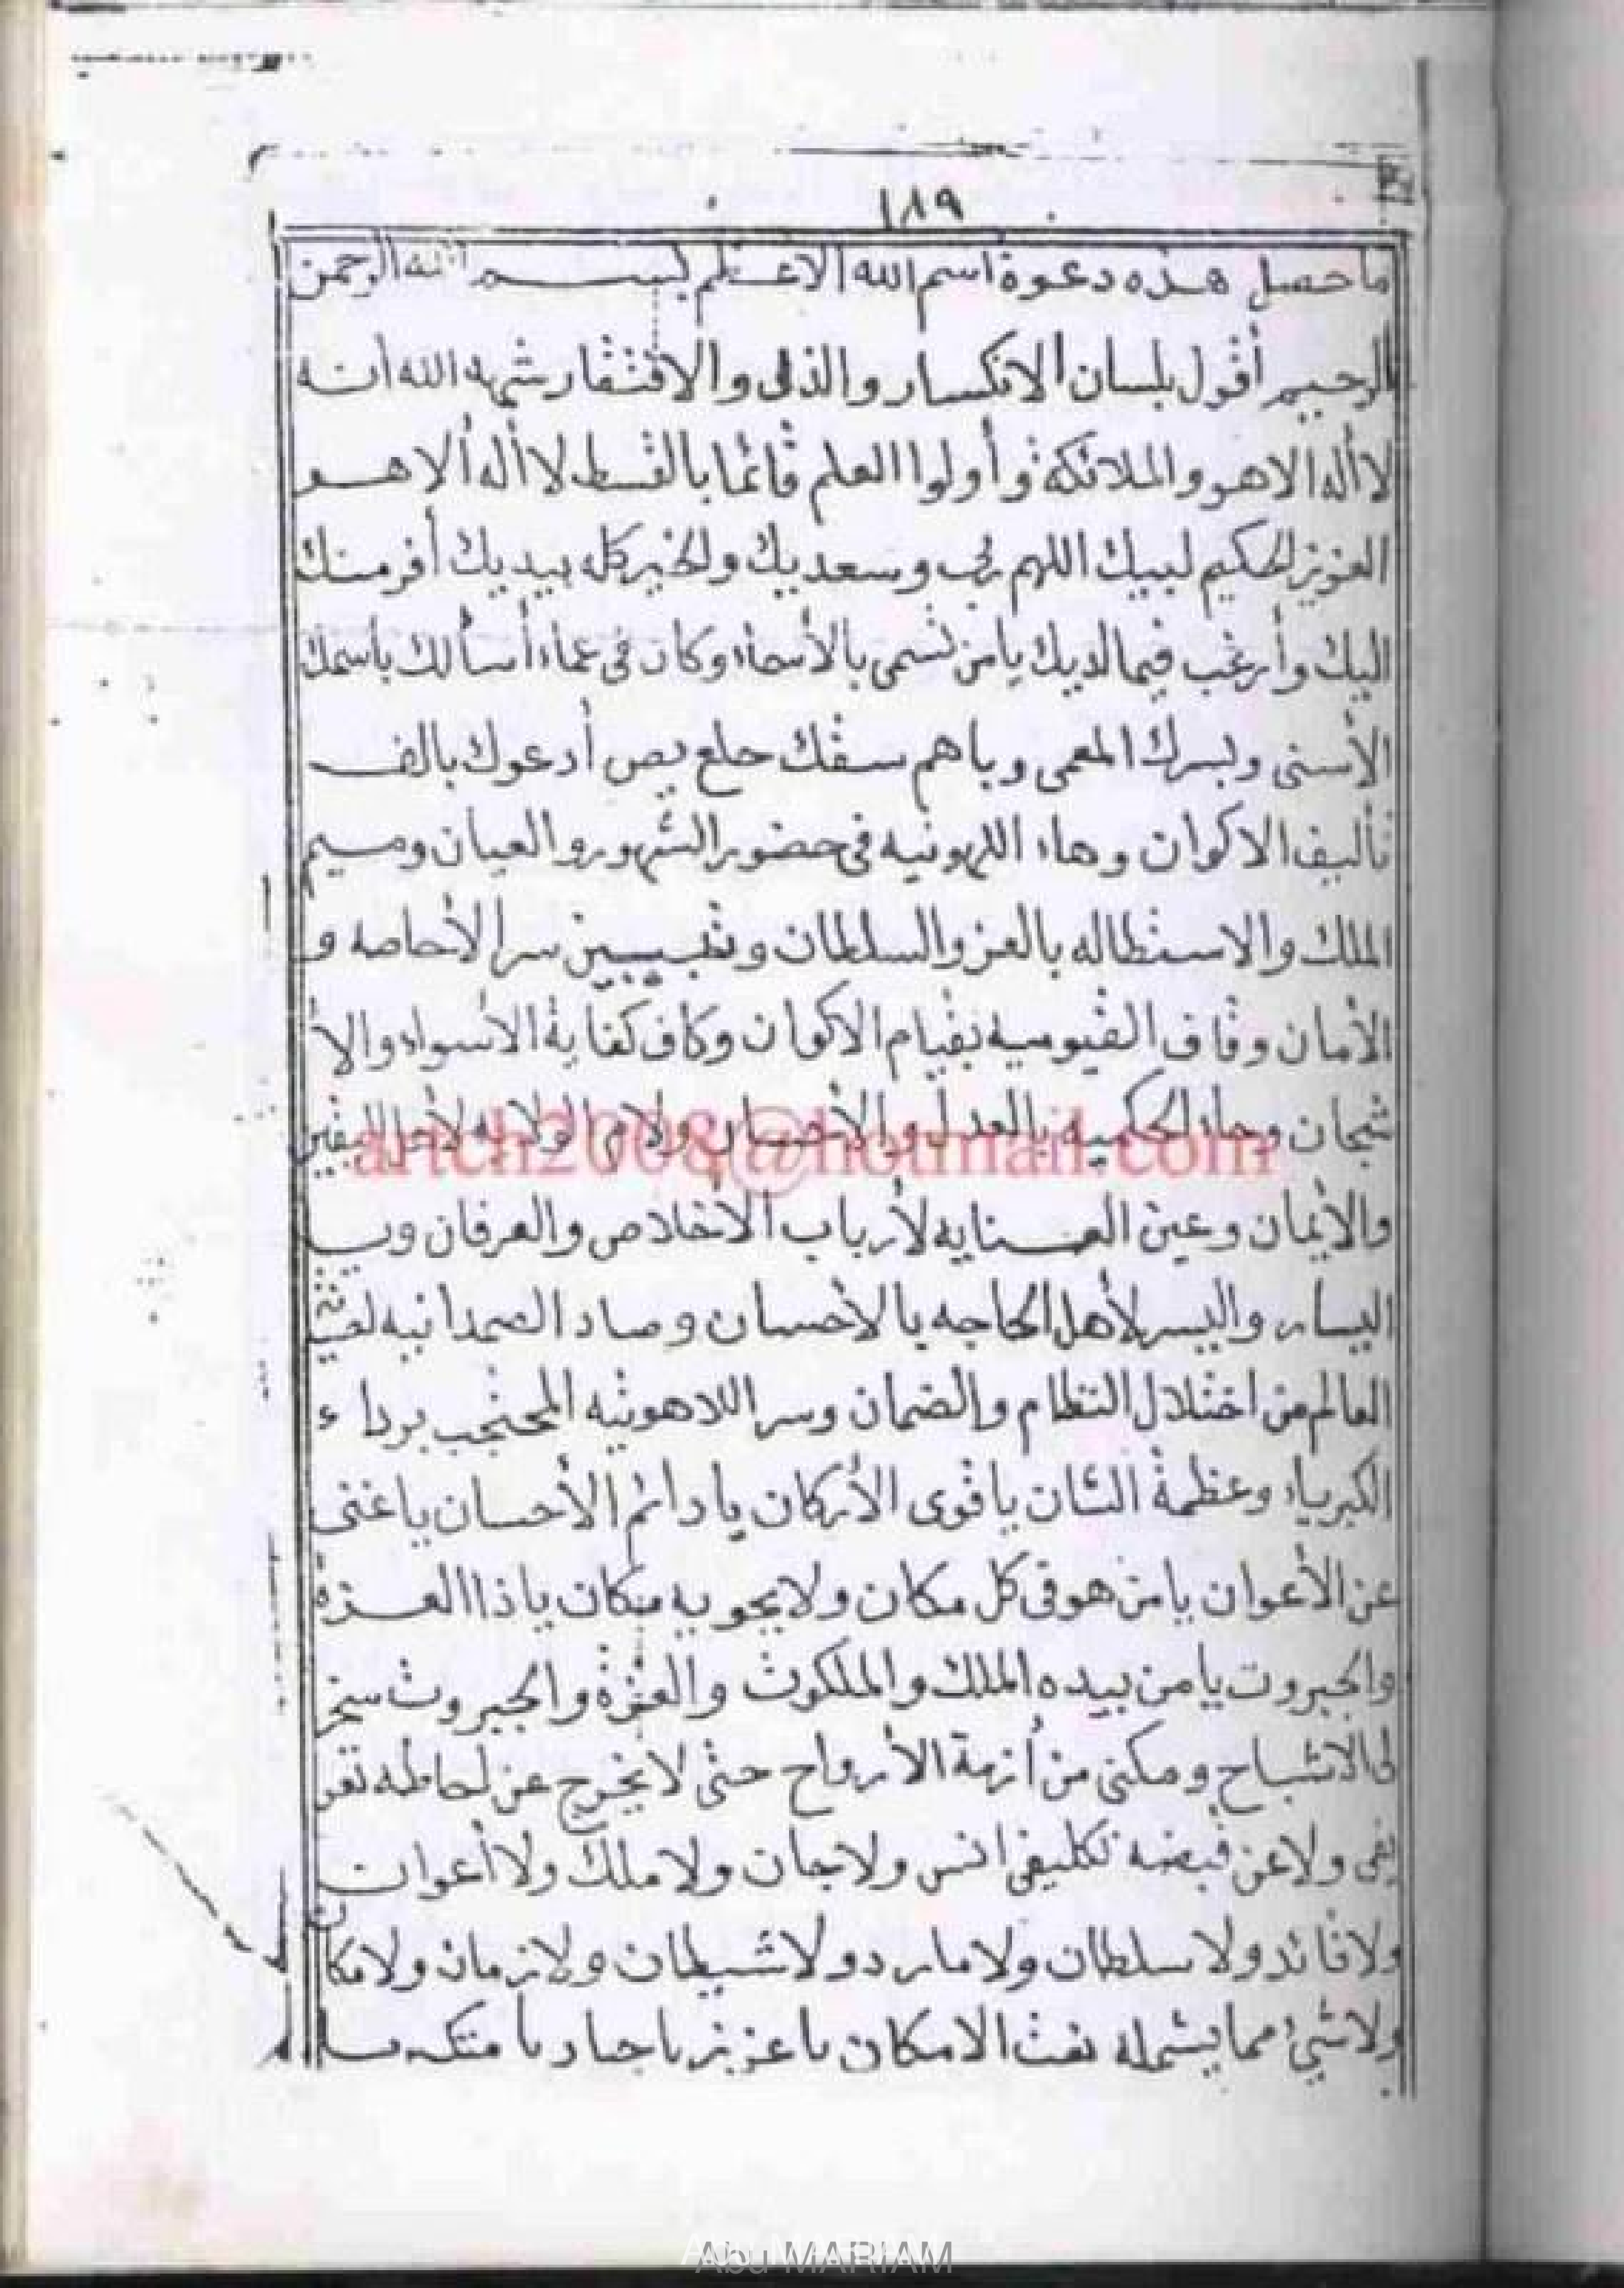 ١٨٩
ما حصل هذه دعوة اسم الله الاعظم بسم الله الرحمن
الرحيم أقول بلسان الانكسار والذل والافتقار شهد الله انه
لا أله الا هو والملائكة وأولوا العلم قائما بالقسط لا أله ألا هو
العزيز الحكيم لبيك اللهم ربي وسعديك والخير كله بيديك أفر منك
اليك وأرغب فيما لديك يا من تسمى بالأسماء وكان فى عماء أسألك بأسمك
الأسنى وبسرك المعمى وباهم سقك حلع يص أدعوك بالف
تأليف الاكوان وهاء اللهونيه فى حضور الشهور والعيان وميم
الملك والاستطاله بالعز والسلطان وتبسين سر الأحاصه و
الأمان وقاف القيوميه بقيام الاكوان وكاف كفاية الأسواء والأ
شجان وحاء الحكميه بالعدل والأحسان ولام الولايه لأهل اليقين
والأيمان وعين العنايه لأرباب الأخلاص والعرفان ويـ
اليسار واليسر لأهل الحاجه بالأحسان وصاد الصمدانيه
العالم من اختلال النظام والضمان وسر اللاهوتيه المحتجب برداء
الكبرياء وعظمة الشان يا قوى الأركان يا دائم الأحسان يا غنى
عن الأعوان يا من هو فى كل مكان ولا يحويه مكان يا ذا العزة
والجبروت يا من بيده الملك والملكوت والعزة والجبروت سخر
لى الاشباح ومكنى من أزمة الأرواح حتى لا يخرج عن لحاطه تعر
يفى ولا عن قبضه تكليفى انس ولا جان ولا ملك ولا أعوان
ولا قائد ولا سلطان ولا مارد ولا شيطان ولا زمان ولا مكان
ولا شيئ مما يشمله نعت الامكان يا عزيز يا جبار يا متكبر
artch2008@hotmail.com
Abu MARIAM